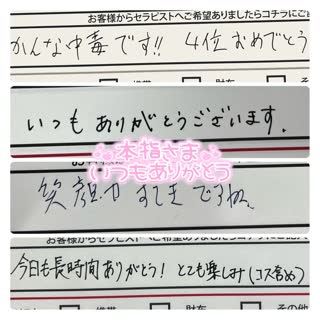 お客様からセラピストへご希望ありましたらコチラにご
かんな中毒です!! 4位おめでとう
いつもありがとうございます.
本指さま
いつもありがとう
笑顔がすてきですね。
お客様からセラピストへご希望ありましたらコチラにご記入
今日も長時間ありがとう! とても楽しみ(コス含め)
その他